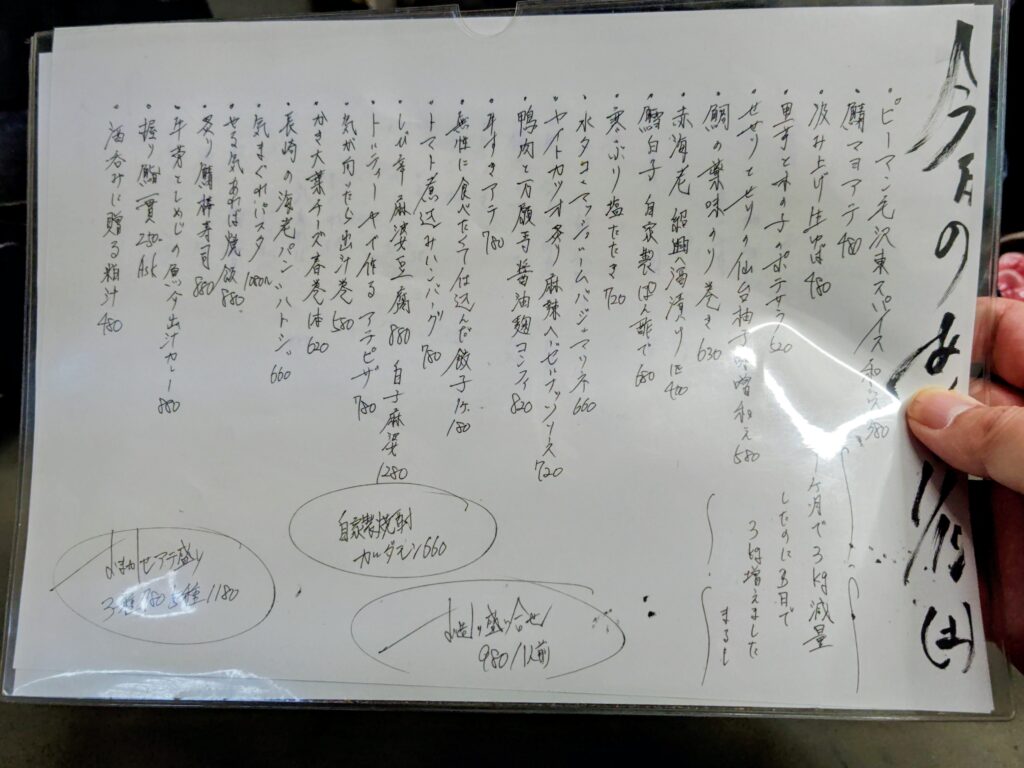 今日のあ 1/19(土)
・ピーマン元沢東スパイス和え 380
・鯖マヨアテ 480
・汲み上げ生ゆば 480
・里芋と木の子のポテサラ 520
・せせりとせりの仙台柚子味噌和え 580
・鯛の薬味のり巻き 630
・赤海老 紹興酒漬け1ヶ400
・鱈白子 自家製ぽん酢で 680
・寒ぶり塩たたき 720
・水タコとマッシュルームバジルマリネ 660
・ヤイトカツオ炙り 麻辣 ソース 720
・鴨肉と万願寺醤油麹コンフィ 820
・牛すきアテ 780
・無性に食べたくて仕込んだ餃子1ヶ180
・トマト煮込みハンバーグ 780
・しび辛麻婆豆腐 880 白子麻婆 1280
・トルティーヤで作るアラピザ 780
・気が向いたら出汁巻 580
・かき大葉チーズ春巻1本620
・長崎の海老パン"ハトシ" 660
・気まぐれパスタ 1080〜
・やる気あれば焼飯 880
・炙り鯖棒寿司 880
・牛蒡としめじの 出汁カレー 880
・握り鮨一貫 250〜 ASK
・酒呑みに贈る粕汁 480
1ヶ月で3kg減量
したのに3日で
3kg増えました
まるし
自家製焼酎
カルダモン 660
お造り盛り合せ
980/1人前
おまかせアテ盛り
3種780 5種1180